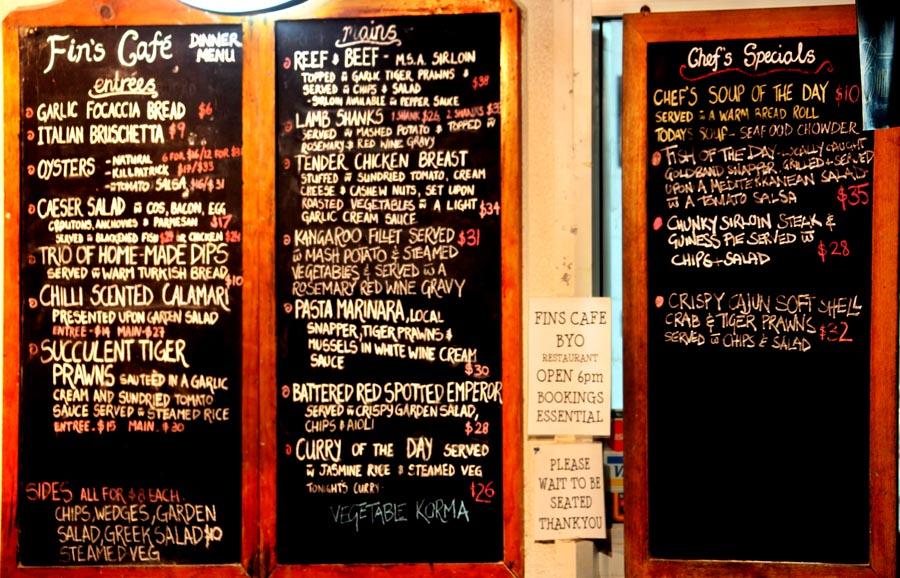 Fin's Café
DINNER
MENU
entrées
GARLIC FOCACCIA BREAD $6
ITALIAN BRUSCHETTA $9
OYSTERS - NATURAL 6 FOR $16/12 FOR
- KILLPATRICK $17/$33
- TOMATO SALSA $16/$31
CAESER SALAD w COS, BACON, EGG
CROUTONS, ANCHOVIES & PARMESAN $17
SERVED w BLACKENED FISH $27 OR CHICKEN $24
TRIO OF HOME-MADE DIPS
SERVED w WARM TURKISH BREAD $10
CHILLI SCENTED CALAMARI
PRESENTED UPON GARDEN SALAD
ENTREE-$14 MAIN-$27
SUCCULENT TIGER
PRAWNS SAUTEED IN A GARLIC
CREAM AND SUNDRIED TOMATO
SAUCE SERVED w STEAMED RICE
ENTREE. $15 MAIN. $30
SIDES ALL FOR $8 EACH.
CHIPS, WEDGES, GARDEN
SALAD, GREEK SALAD $10
STEAMED VEG
mains
REEF & BEEF - M.S.A. SIRLOIN
TOPPED w GARLIC TIGER PRAWNS &
SERVED w CHIPS & SALAD $38
-SIRLOIN AVAILABLE w PEPPER SAUCE
LAMB SHANKS 1 SHANK $26 2 SHANKS $35
SERVED w MASHED POTATO & TOPPED w
ROSEMARY & RED WINE GRAVY
TENDER CHICKEN BREAST
STUFFED w SUNDRIED TOMATO, CREAM
CHEESE & CASHEW NUTS, SET UPON
ROASTED VEGETABLES w A LIGHT $34
GARLIC CREAM SAUCE
KANGAROO FILLET SERVED $31
w MASH POTATO & STEAMED
VEGETABLES & SERVED w A
ROSEMARY RED WINE GRAVY
PASTA MARINARA, LOCAL
SNAPPER, TIGER PRAWNS &
MUSSELS IN WHITE WINE CREAM
SAUCE $30
BATTERED RED SPOTTED EMPEROR
SERVED w CRISPY GARDEN SALAD,
CHIPS & AIOLI $28
CURRY OF THE DAY SERVED
w JASMINE RICE & STEAMED VEG
TONIGHT'S CURRY- $26
VEGETABLE KORMA
FINS CAFE
BYO
RESTAURANT
OPEN 6pm
BOOKINGS
ESSENTIAL
PLEASE
WAIT TO BE
SEATED
THANKYOU
Chef's Specials
CHEF'S SOUP OF THE DAY $10
SERVED w A WARM BREAD ROLL
TODAYS SOUP - SEAFOOD CHOWDER
FISH OF THE DAY - LOCALLY CAUGHT
GOLDBAND SNAPPER GRILLED & SERVED
UPON A MEDITERRANEAN SALAD
w A TOMATO SALSA $35
CHUNKY SIRLOIN STEAK &
GUINESS PIE SERVED w
CHIPS + SALAD $28
CRISPY CAJUN SOFT SHELL
CRAB & TIGER PRAWNS $32
SERVED w CHIPS & SALAD